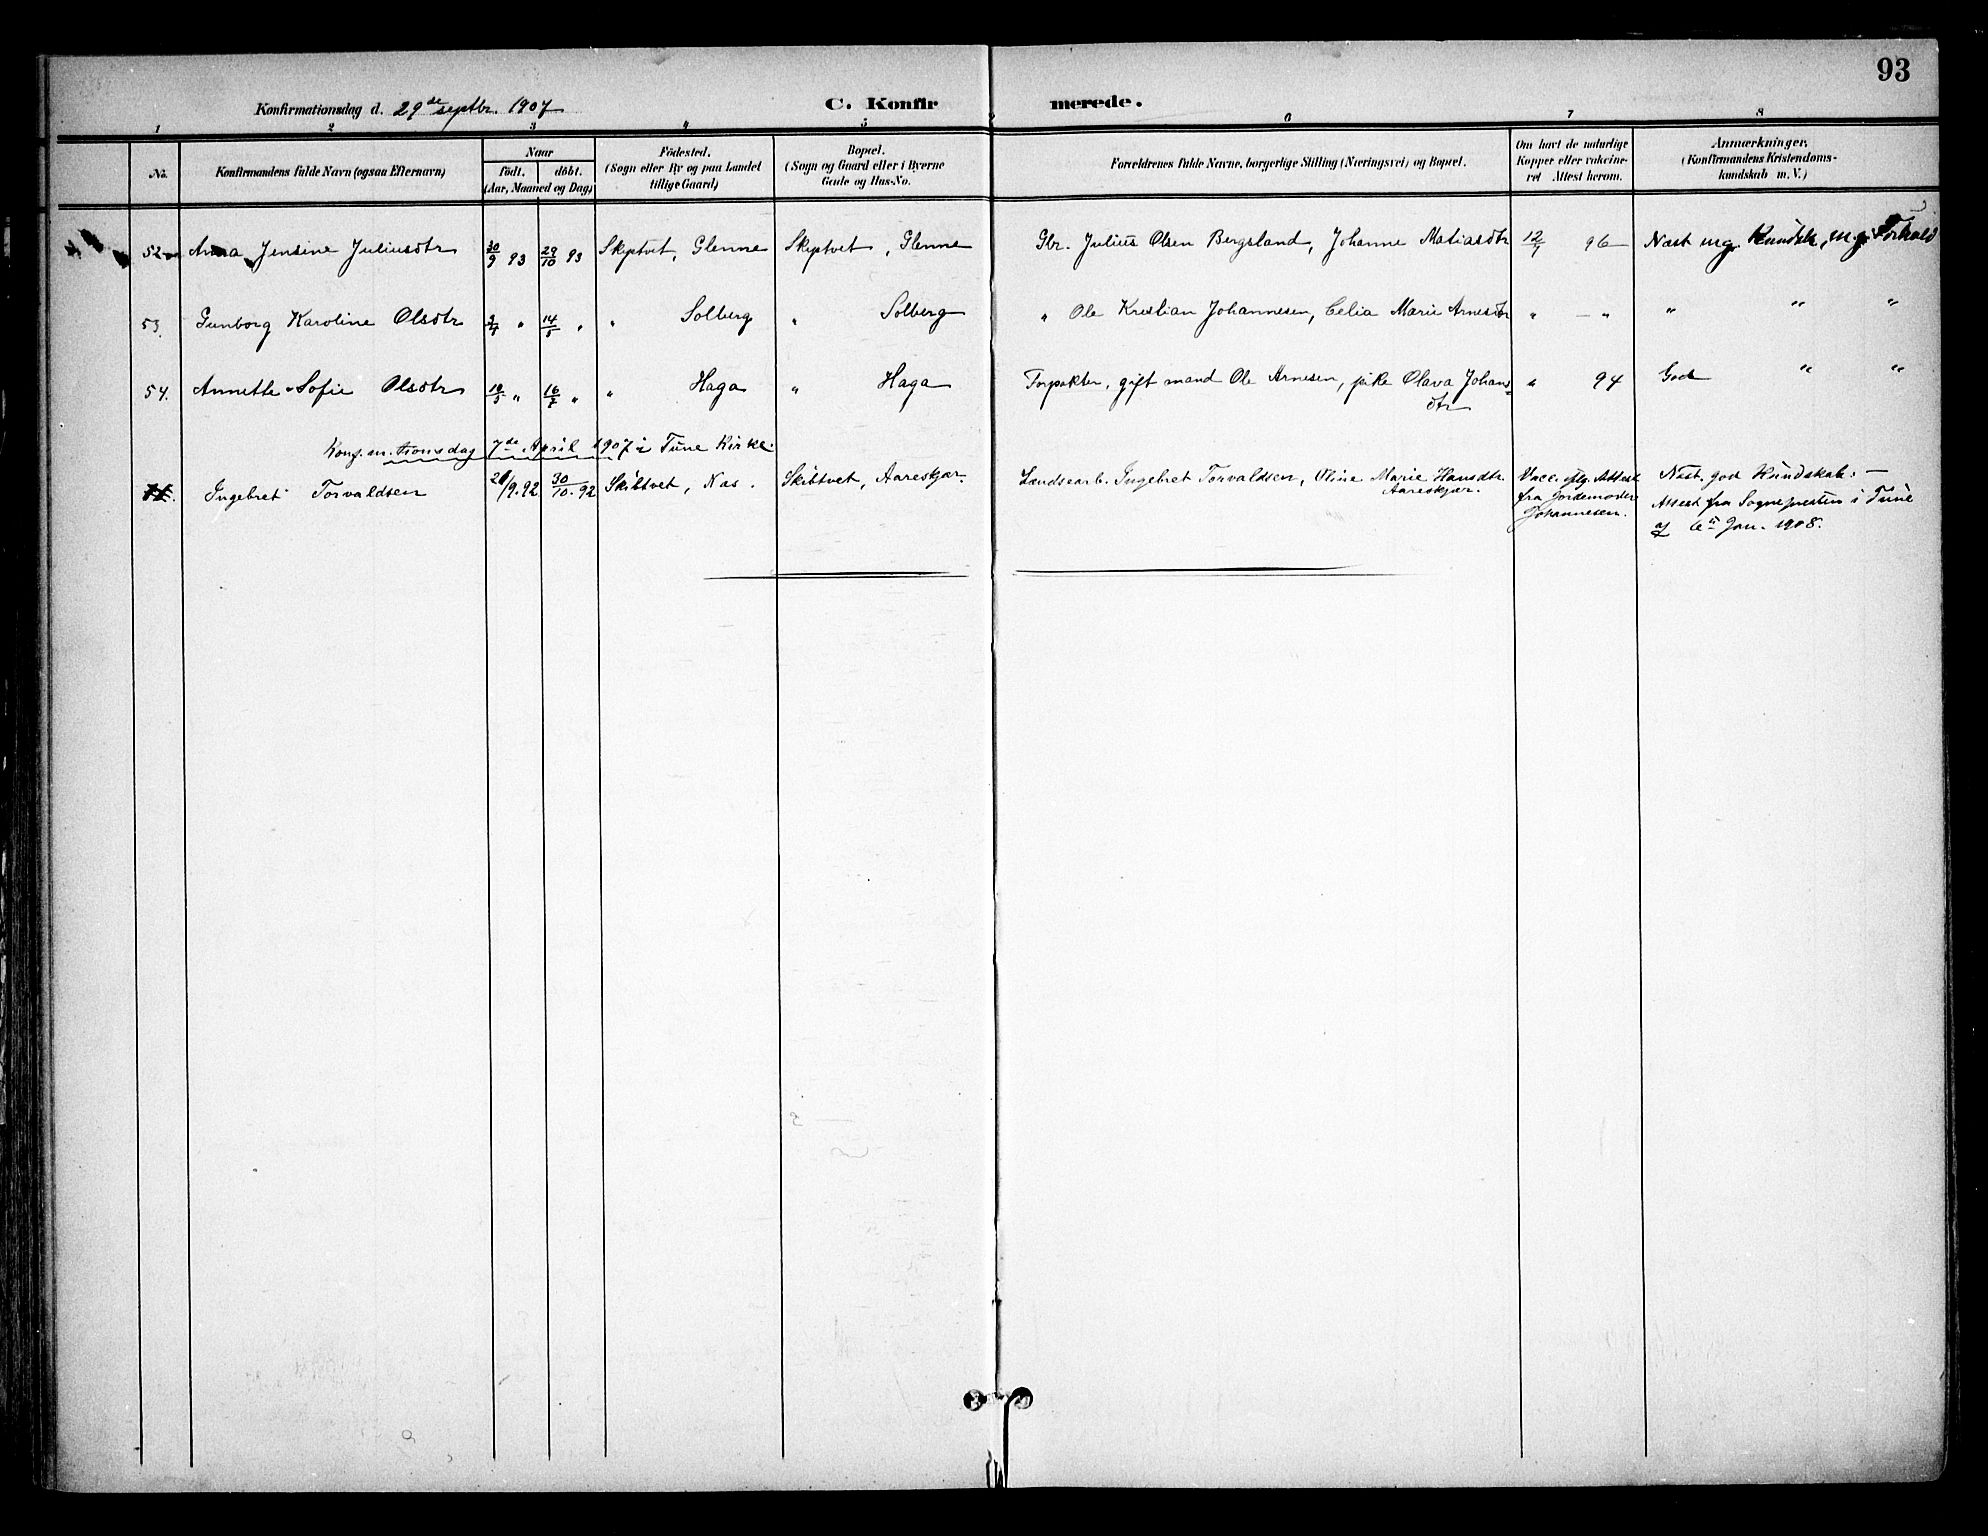 93
Konfirmationsdag d. 29de septbr. 1907
C. Konfirmerede.
1 2 3 4 5 6 7 8
No.
Konfirmandens fulde Navn (ogsaa Efternavn)
Naar
födt. döbt.
(Aar, Maaned og Dag)
Födested.
(Sogn eller By og paa Landet
tillige Gaard)
Bopæl.
(Sogn og Gaard eller i Byerne
Gade og Hus-No.
Forældrenes fulde Navne, borgerlige Stilling (Næringsvei) og Bopæl.
Om havt de naturlige
Kopper eller vakcine-
ret Attest herom.
Anmærkninger,
(Konfirmandens Kristendoms-
kundskab m. V.)
52 Anna Jensine Juliusdtr 30/9 93 29/10 93 Skiptvet, Glenne Skiptvet, Glenne Gbr. Julius Olsen Bergsland, Johanne Matiasdtr 12/7 96 Næst mg. Kundsk, m.g. Forhold
53. Gunborg Karoline Olsdtr " 14/5 " " Solberg " Solberg " Ole Kristian Johannesen, Celia Marie Arnesdtr " — " " " "
54. Annette Sofie Olsdtr " 16/7 " " Haga " Haga Forpakter, gift mand Ole Arnesen, pike Olava Johans=
dtr " 94 God " "
Konf.m.tionsdag 7de April 1907 i Tune Kirke.
Ingebret Torvaldsen /9.92 30/10.92 Skibtvet, Næs. Skibtvet, Aareskjær. Landsearb. Ingebret Torvaldsen, Oline Marie Hansdtr.
Aareskjær.
Vacc. iflg. Attest
fra Jordemoder
Johannesen.
Næst. god Kundskab: —
Attest fra Sognepresten i Tune
af 6te Jan. 1908.